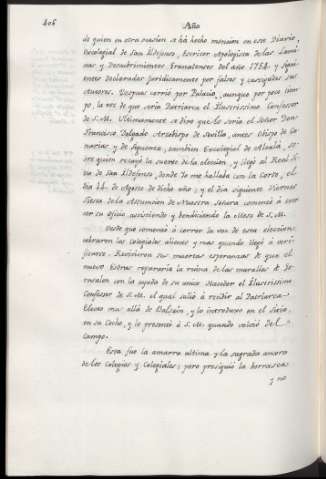 406
Año
de quien en otra ocasion se há hecho mencion en este Diario,
Excolegial de San Ildefonso, Escritor Apologista de las Lami-
nas y Descubrimientos Granatenses del año 1754. y sigui-
entes declaradas juridicamente por falsas y castigados sus
Autores. Despues corrió por Palacio, aunque por poco tiem-
po, la voz de que sería Patriarca el Ilustrisimo Confesor
de S.M. Ultimamente se dixo que lo sería el Señor Don
Francisco Delgado Arzobispo de Sevilla, antes Obispo de Ca-
narias, y de Siguenza, tambien Excolegial de Alcalá, so-
bre quien recayó la suerte de la eleccion, y llegó al Real Si-
tio de San Ildefonso, donde se hallaba con la Corte, el
dia 14. de Agosto de dicho año; y el dia siguiente Viernes
fiesta de la Assuncion de Nuestra Señora comenzó á exer-
cer su oficio, assistiendo y bendiciendo la Mesa de S.M.
Desde que comenzó á correr la voz de esta eleccion, ce-
lebraron los Colegiales alientos y mas quando llegó á veri-
ficarse. Revivieron sus muertas esperanzas de que el
nuevo Esdras repararía la ruina de las murallas de Je-
rusalen con la ayuda de su amico el Ilustrisimo
Confesor de S.M. el qual salió á recibir al Patriarca
Electo mas allá de Balsaín, y lo introduxo en el Sitio,
en su Coche, y lo presentó á S.M. quando volvió del
Campo.
Esta fue la amarra ultima y la sagrada ancora
de los Colegios y Colegiales; pero prosiguió la borrasca